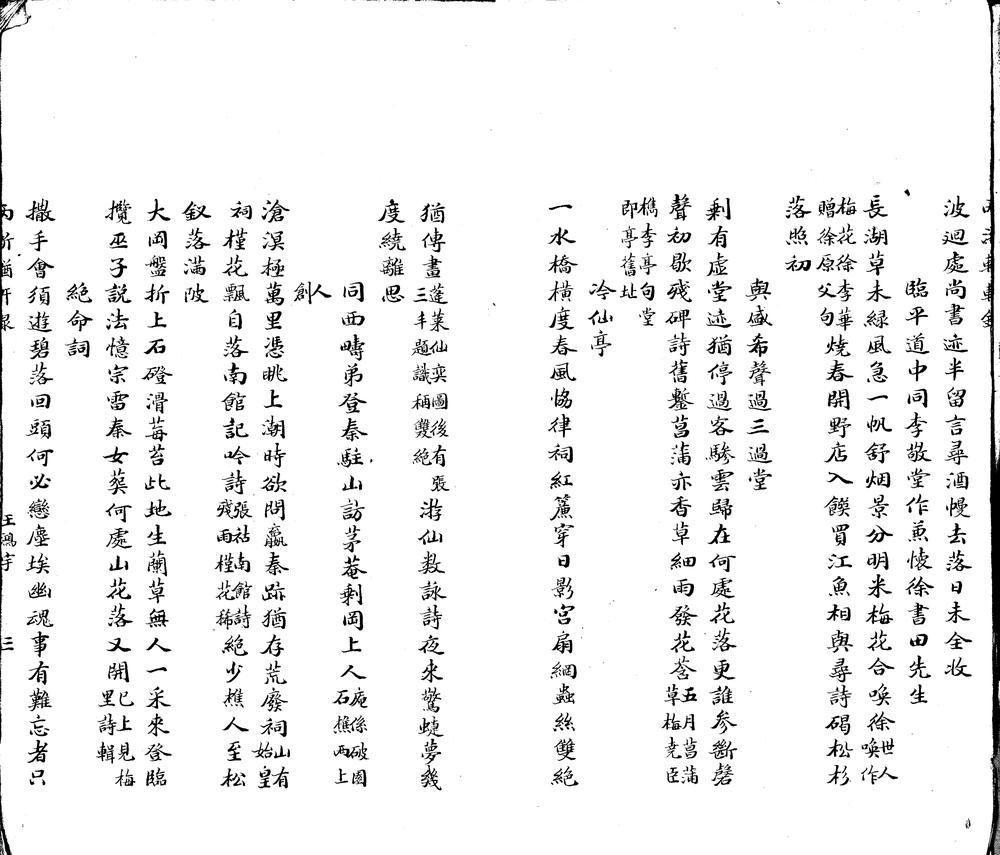 波迴處尚書迹半留言尋酒慢去落日未全收
臨平道中同李敬堂作兼懷徐書田先生
長湖草未綠風急一帆舒烟景分明米梅花合喚徐世人喚作
梅花徐李華贈徐原父句燒春開野店入饌買江魚相與尋詩碣松杉
落照初
與盛希聲過三過堂
剩有虛堂迹猶停過客驂雲歸在何處花落更誰參斷磬
聲初歇殘碑詩舊鑿菖蒲亦香草細雨發花荅五月菖蒲草梅堯臣
檇李亭句堂即亭舊址
冷仙亭
一水橋橫度春風恊律祠紅簾穿日影宮扇網蟲絲雙絶
猶傳畫蓬萊仙奕圖後有張三丰題識稱雙絶游仙数詠詩夜來驚蜨夢幾
度繞離思
同西疇弟登秦駐山訪茅菴剩岡上人菴係破園石樵兩上
人創
滄溟極萬里憑眺上潮時欲問嬴秦跡猶存荒廢祠山有始皇
祠槿花飄自落南館記吟詩張祜南館詩殘雨槿花稀絶少樵人至松
釵落滿陂
大岡盤折上石磴滑莓苔此地生蘭草無人一采來登臨
攬巫子説法憶宗雷秦女葬何處山花落又開已上見梅里詩輯
絶命詞
撒手會須遊碧落回頭何必戀塵埃幽魂事有難忘者只
三